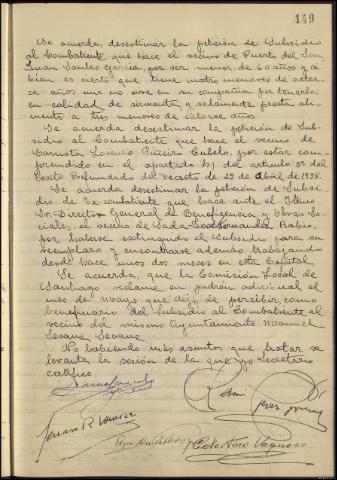 149
Se acuerda, desestimar la petición de Subsidio
al Combatiente que hace el vecino de Puerto del Son,
Juan Saules García, por ser menor de 60 años y si
bien es cierto que tiene cuatro menores de cator-
ce años una no vive en su compañía por tenerla
en calidad de sirvienta, y solamente presta ali-
mento a tres menores de catorce años.
Se acuerda desestimar la petición de Sub-
sidio al Combatiente que hace el vecino de
Carnota Lorenzo Piñeiro por estar com-
prendido en el apartado b) del artículo 5º del
Texto Refundido del decreto de 29 de Abril de 1938.
Se acuerda desestimar la petición de Subsi-
dio de Ex-combatiente que hace ante el Iltmo
Sr. Director General de Beneficencia y Obras So-
ciales, el vecino de Sada
por haberse extinguido el Subsidio para su
reemplazo y encontrarse además trabajando
desde hace unos dos meses en esta Capital.
Se acuerda, que la Comisión Local de
Santiago reclame en padrón adicional el
mes de Mayo que dejó de percibir, como
Beneficiario del Subsidio al Combatiente al
vecino del mismo Ayuntamiento Manuel
Seoane Seoane.
No habiendo más asuntos que tratar se
levanta la sesión de la que yo Secretario
certifico
Celestino Vaquero